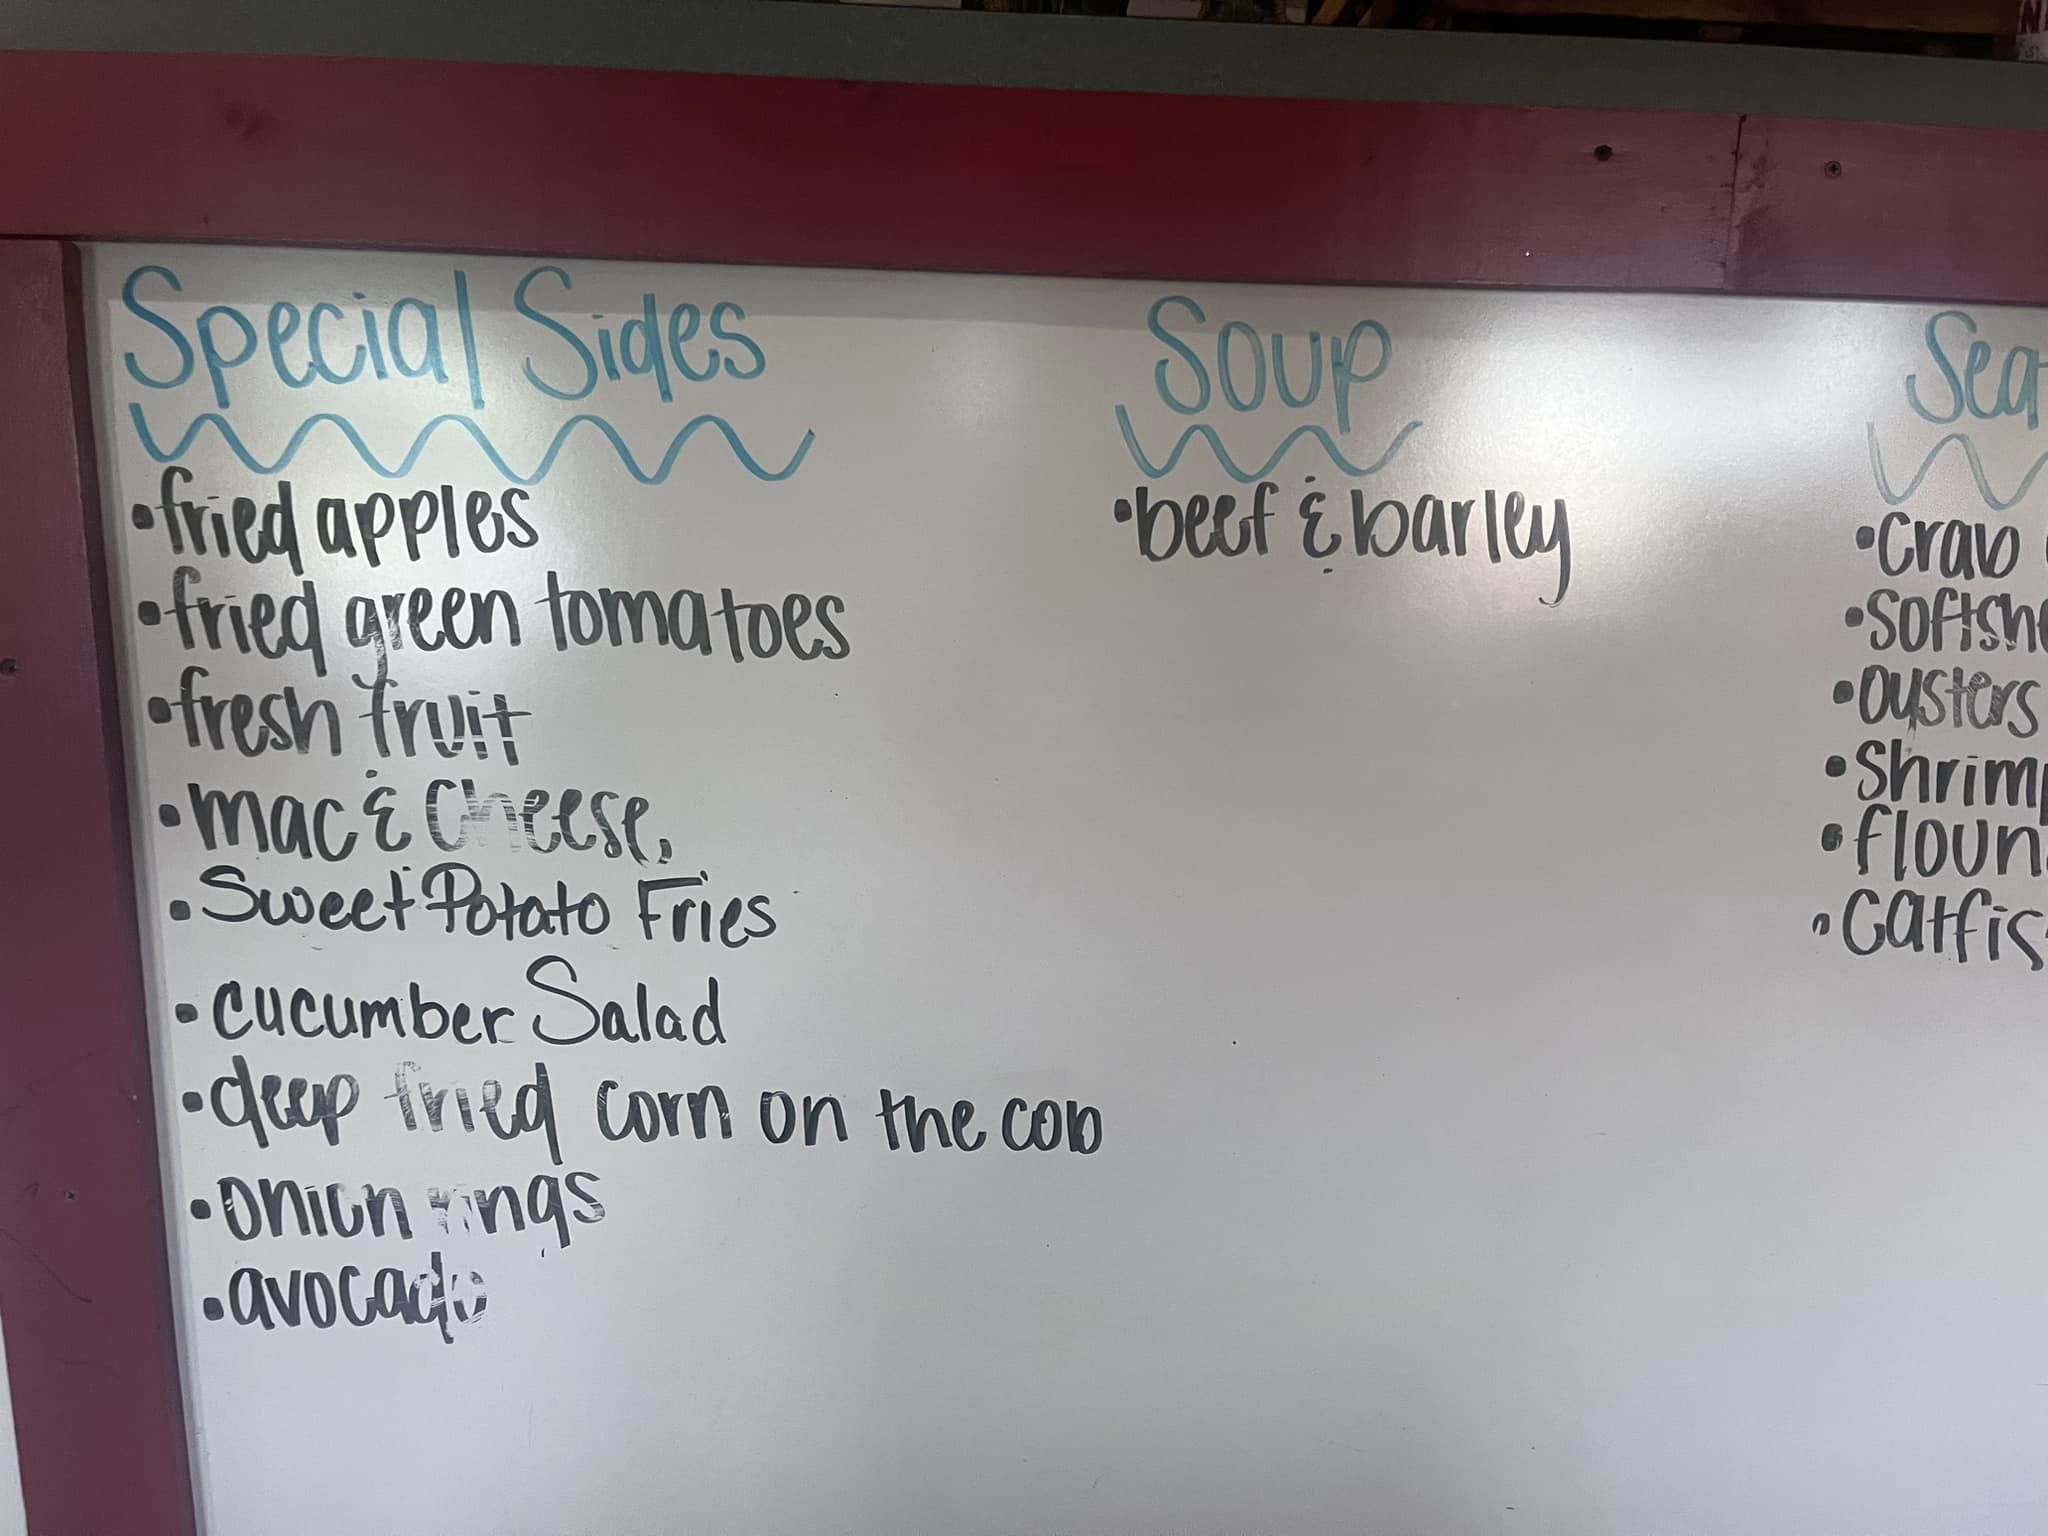 Special Sides
•fried apples
•fried green tomatoes
•fresh fruit
•mac & cheese,
•Sweet Potato Fries
•cucumber Salad
•deep fried corn on the cob
•onion rings
•avocado
Soup
•beef & barley
Sea
•Crab
•Softsh
•oysters
•Shrimp
•floun
•Catfis